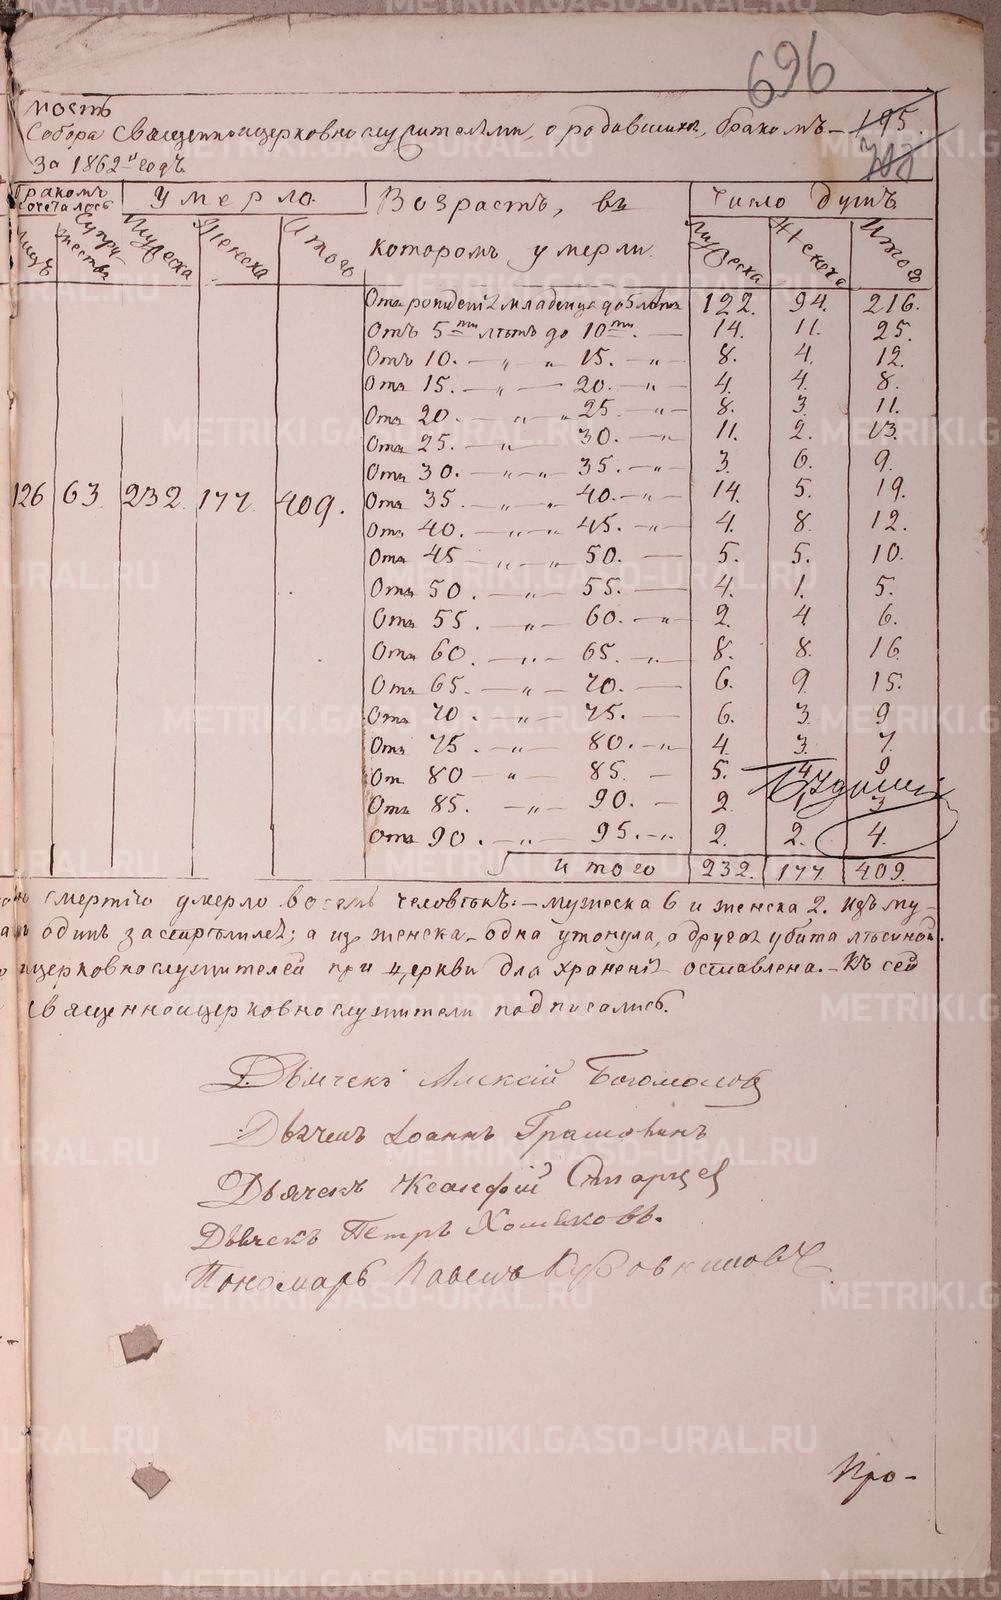 696
ность
Собора Священноцерковнослужителями, о родившихся, бракомъ-
195.
За 1862й годъ
Бракомъ сочеталось
Умерло.
Возрастъ, въ
Число душъ
Лицъ
Супружества
Мужеска
Женска
Итого
которомъ умерли.
Мужеска
Женска
Итого
Отъ рожденія младенца до 5 лѣтъ 122. 94. 216.
Отъ 5ти лѣтъ до 10ти. — 14. 11. 25.
Отъ 10. — „ „ 15. — „ — 8. 4. 12.
Отъ 15. — „ — 20. — „ — 4. 4. 8.
Отъ 20. — „ „ 25. — „ — 8. 3. 11.
Отъ 25. — „ 30. — „ 11. 2. 13.
Отъ 30. — „ „ 35. — „ 3. 6. 9.
126 63. 232. 177. 409.
Отъ 35. „ „ 40. — „ 14. 5. 19.
Отъ 40. — „ „ 45. — „ 4. 8. 12.
Отъ 45 — „ „ 50. — 5. 5. 10.
Отъ 50. — „ — 55. — 4. 1. 5.
Отъ 55. — „ 60. — „ 2. 4 6.
Отъ 60. — „ — 65. — „ 8. 8. 16
Отъ 65. — „ — 70. — 6. 9. 15.
Отъ 70. — „ — 75. — 6. 3. 9
Отъ 75. — „ — 80. — „ 4. 3. 7.
От 80 — „ — 85. — 5. 4 9
Отъ 85. — „ — 90. — 2. 1. 3
Отъ 90. — „ — 95. — „ 2. 2. 4.
Итого 232. 177. 409.
смертію умерло восемь человѣкъ: — мужеска 6 и женска 2. изъ му-
одинъ застрѣлился; а изъ женска — одна утонула, а другая убита лѣсиной.
церковнослужителей при церкви для храненія оставлена. — Къ сей
Священноцерковнослужители подписались.
Дьячекъ Алексій Богомолов
Дьячекъ Іоаннъ Грамовинъ
Дьячекъ Ксенофій Старцев
Дьячекъ Петръ Хомяковъ.
Пономарь Павелъ
Про-